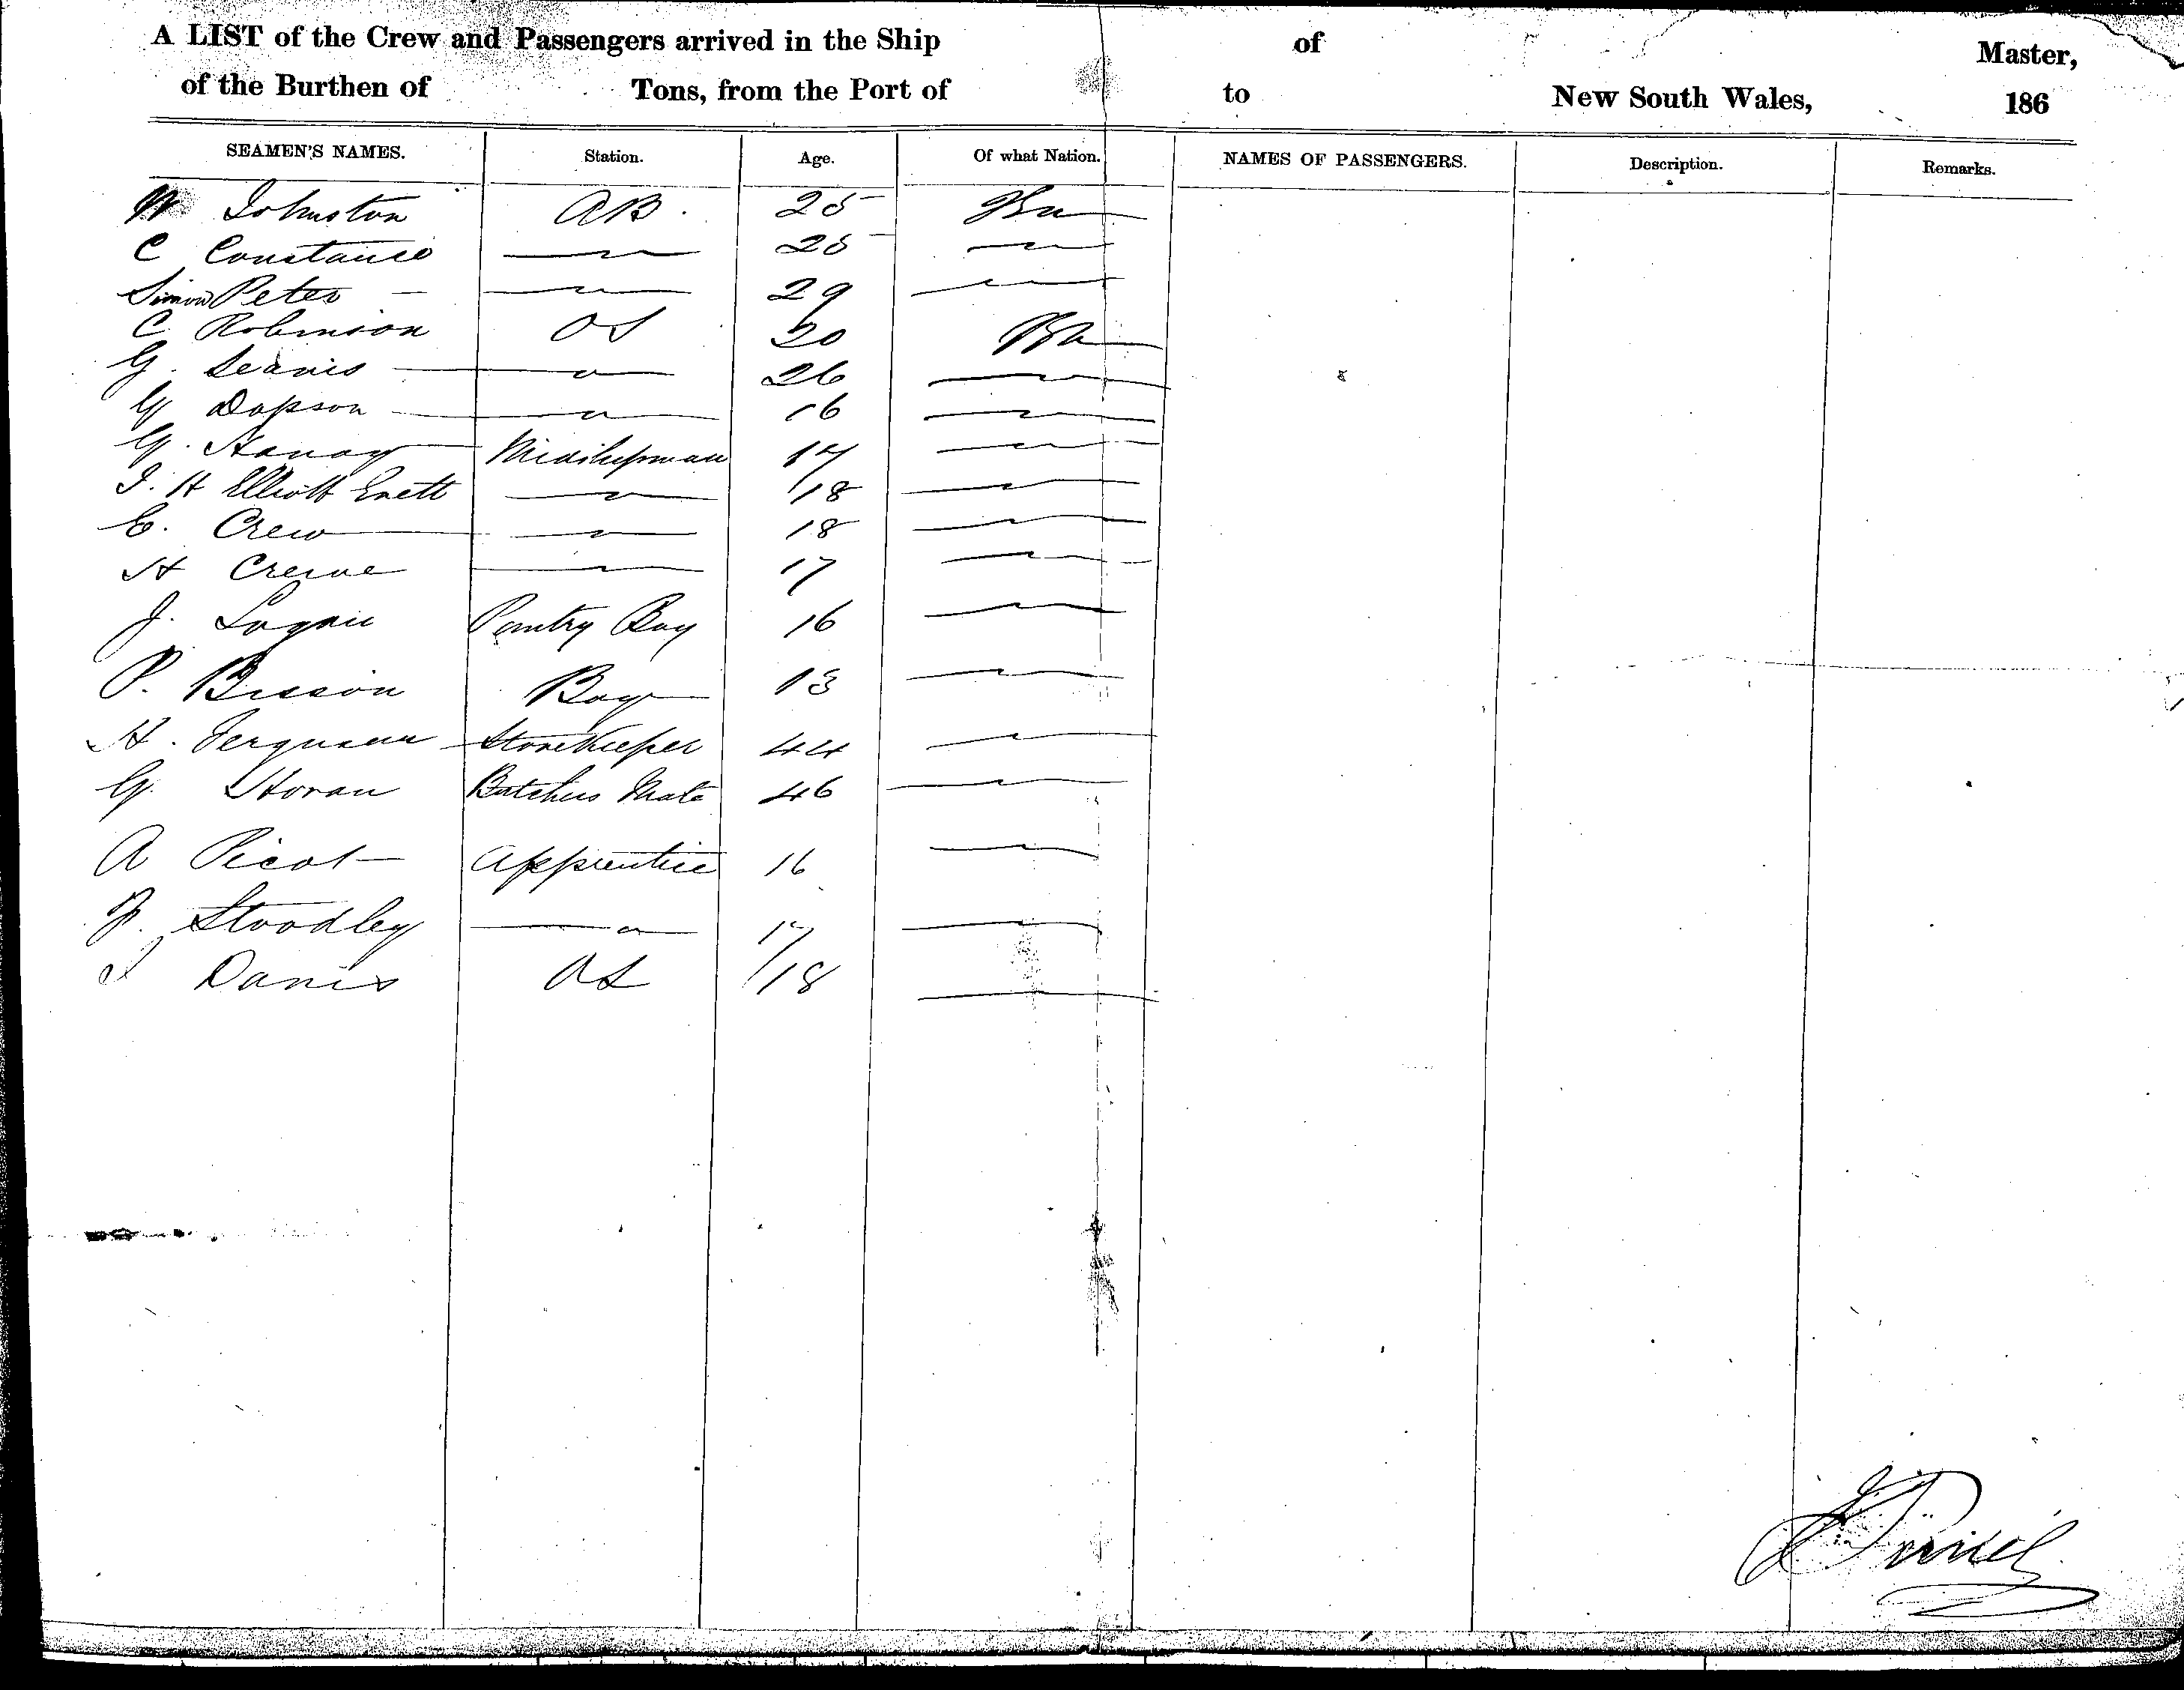 A LIST of the Crew and Passengers arrived in the Ship of Master,
of the Burthen of Tons, from the Port of to New South Wales, 186
SEAMEN'S NAMES. Station. Age. Of what Nation. NAMES OF PASSENGERS. Description. Remarks.
W Johnston AB 25
C Constance 25
Simon Peter 29
C Robinson OS 20
G. 26
G Dopson 16
G. Hanay Midshipman 17
J. H Elliott 18
E. Crew 18
H Crewe 17
J. Logan Pantry Boy 16
P. Bisson Boy 13
H. Ferguson Storekeeper 44
G Horan Butchers Mate 46
A Picot Apprentice 16
J. Stoodley 17
J Davis OS 18